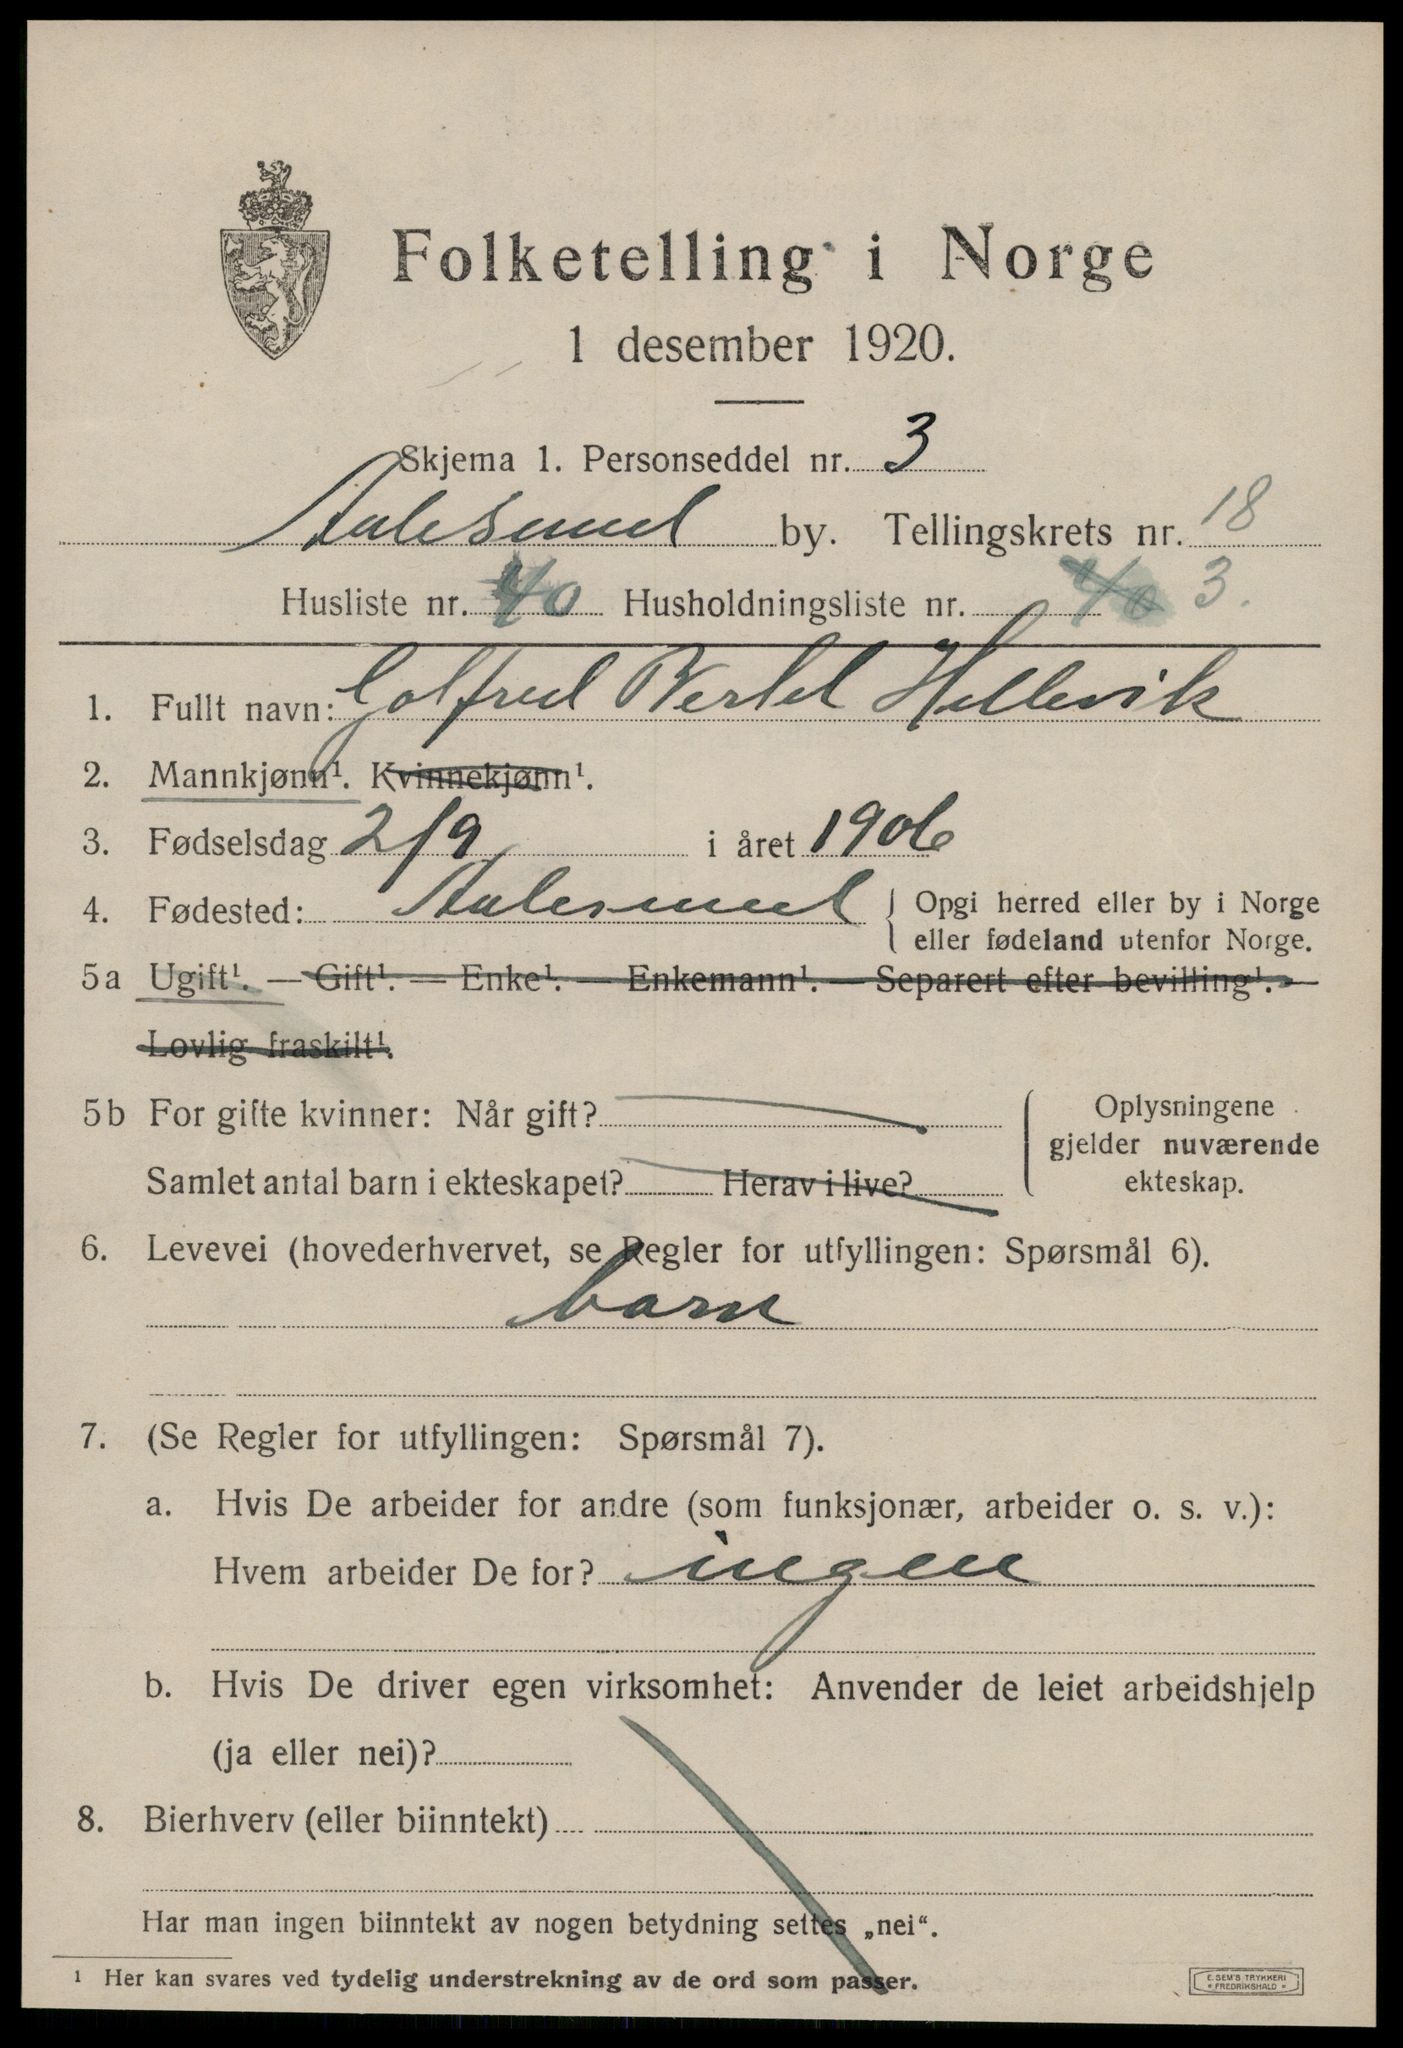 Folketelling i Norge
1 desember 1920.
Skjema 1. Personseddel nr. 3
Aalesund by. Tellingskrets nr. 18
Husliste nr. 40 Husholdningsliste nr. 40 3.
1. Fullt navn: Golfred Bertel Hellevik
2. Mannkjønn¹. Kvinnekjønn¹.
3. Fødselsdag 2/9 i året 1906
4. Fødested: Aalesund { Opgi herred eller by i Norge
eller fødeland utenfor Norge.
5a Ugift¹. — Gift¹. — Enke¹. — Enkemann¹. — Separert efter bevilling¹. —
Lovlig fraskilt¹.
5b For gifte kvinner: Når gift?
Samlet antal barn i ekteskapet? Herav i live?
Oplysningene
gjelder nuværende
ekteskap.
6. Levevei (hovederhvervet, se Regler for utfyllingen: Spørsmål 6).
barn
7. (Se Regler for utfyllingen: Spørsmål 7).
a. Hvis De arbeider for andre (som funksjonær, arbeider o. s. v.):
Hvem arbeider De for? ingen
b. Hvis De driver egen virksomhet: Anvender de leiet arbeidshjelp
(ja eller nei)?
8. Bierhverv (eller biinntekt)
Har man ingen biinntekt av nogen betydning settes „nei“.
¹ Her kan svares ved tydelig understrekning av de ord som passer.
E. SEM'S TRYKKERI
FREDRIKSHALD